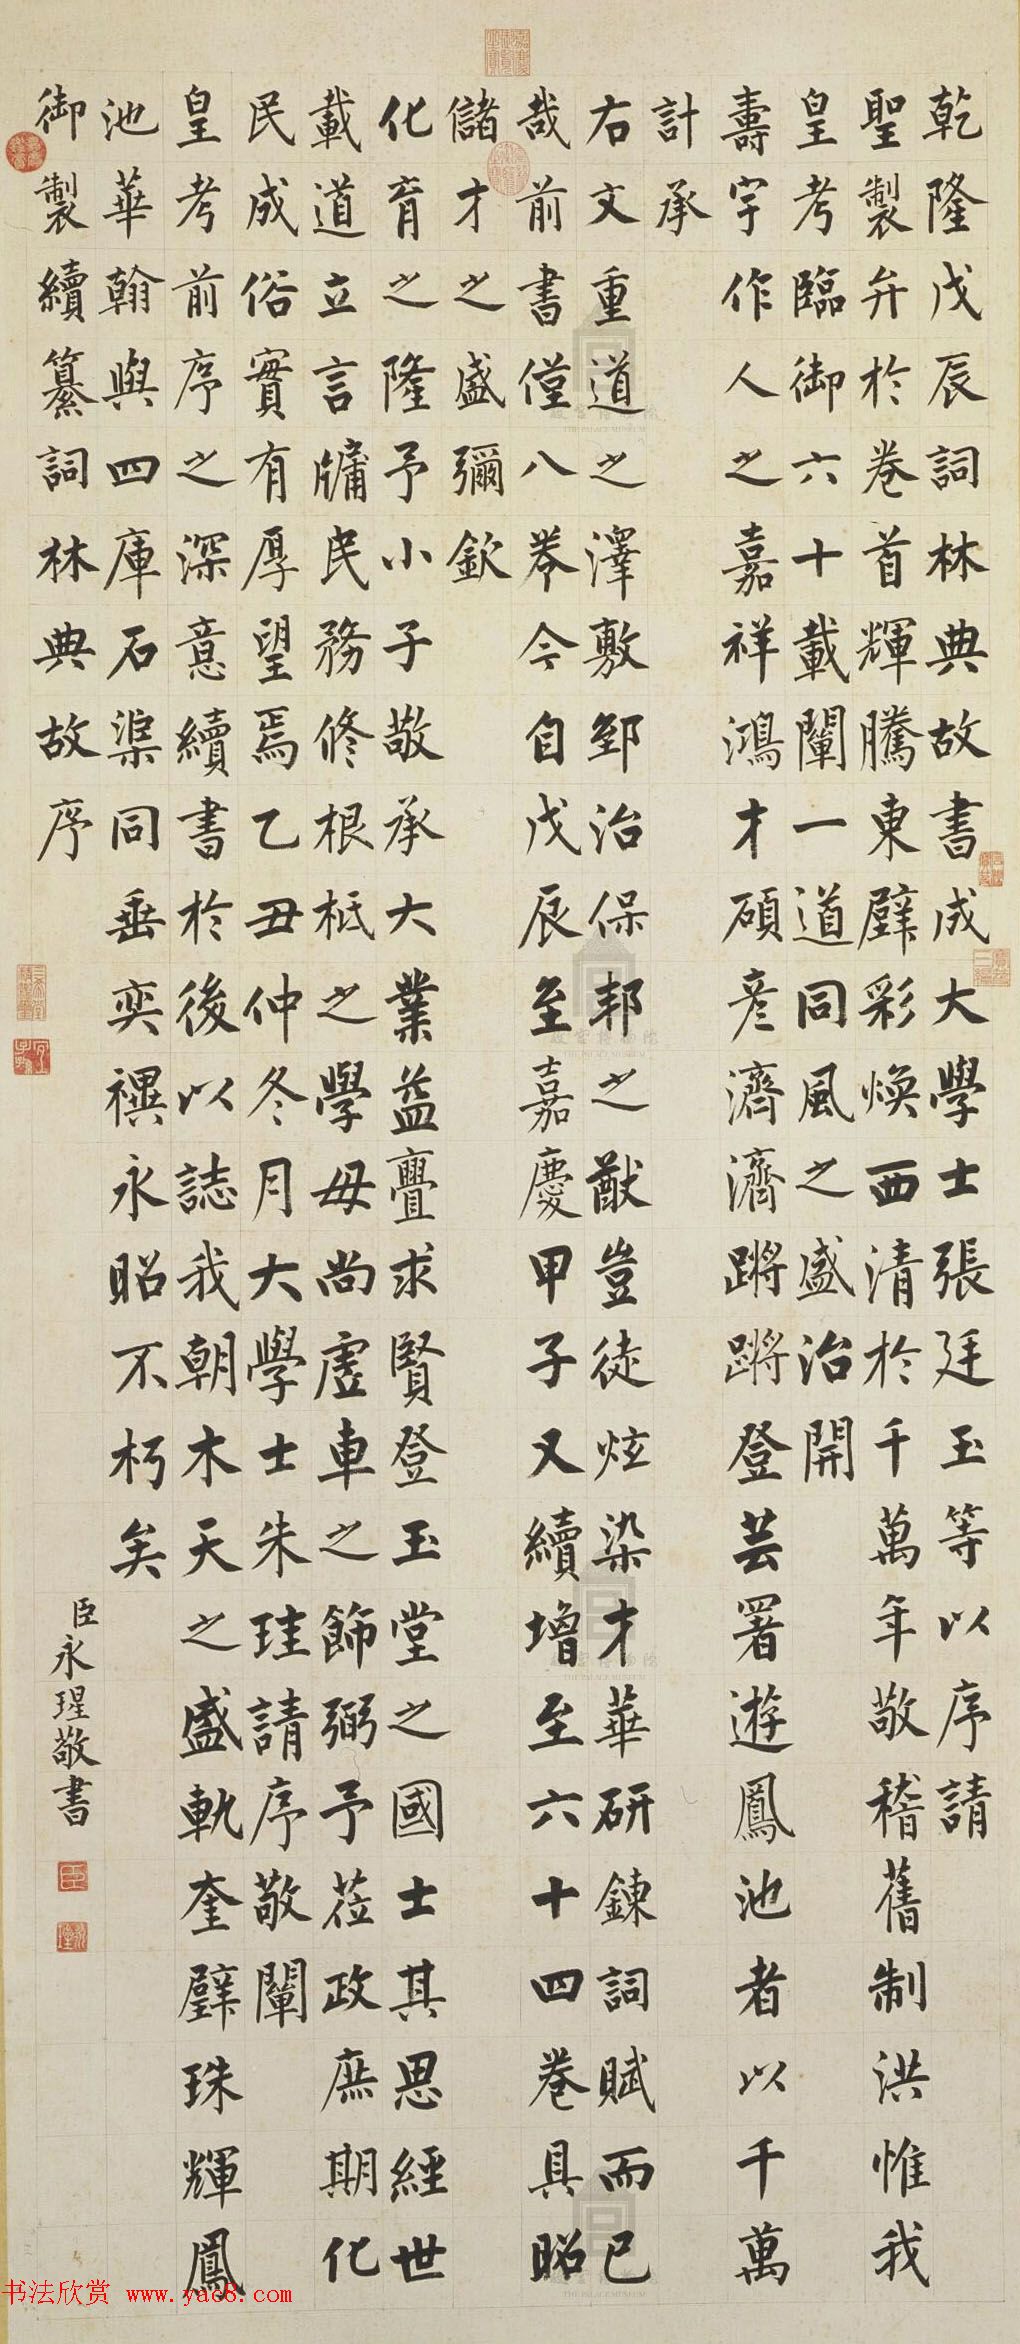 乾隆戊辰詞林典故書成大學士張廷玉等以序請
聖製弁於卷首輝騰東壁彩煥西清於千萬年敬稽舊制洪惟我
皇考臨御六十載闡一道同風之盛治開
壽宇作人之嘉祥鴻才碩彥濟濟蹡蹡登芸署遊鳳池者以千萬
計承
右文重道之澤敷郅治保邦之猷豈徒炫染才華研鍊詞賦而已
哉前書僅八卷今自戊辰至嘉慶甲子又續增至六十四卷具昭
儲才之盛彌欽
化育之隆予小子敬承大業益亹求賢登玉堂之國士其思經世
載道立言牖民務修根柢之學毋尚虛車之飾弼予蒞政庶期化
民成俗實有厚望焉乙丑仲冬月大學士朱珪請序敬闡
皇考前序之深意續書於後以誌我朝木天之盛軌奎壁珠輝鳳
池華翰與四庫石渠同垂奕禩永昭不朽矣
御製續纂詞林典故序
臣永瑆敬書
书法欣赏 www.yac8.com